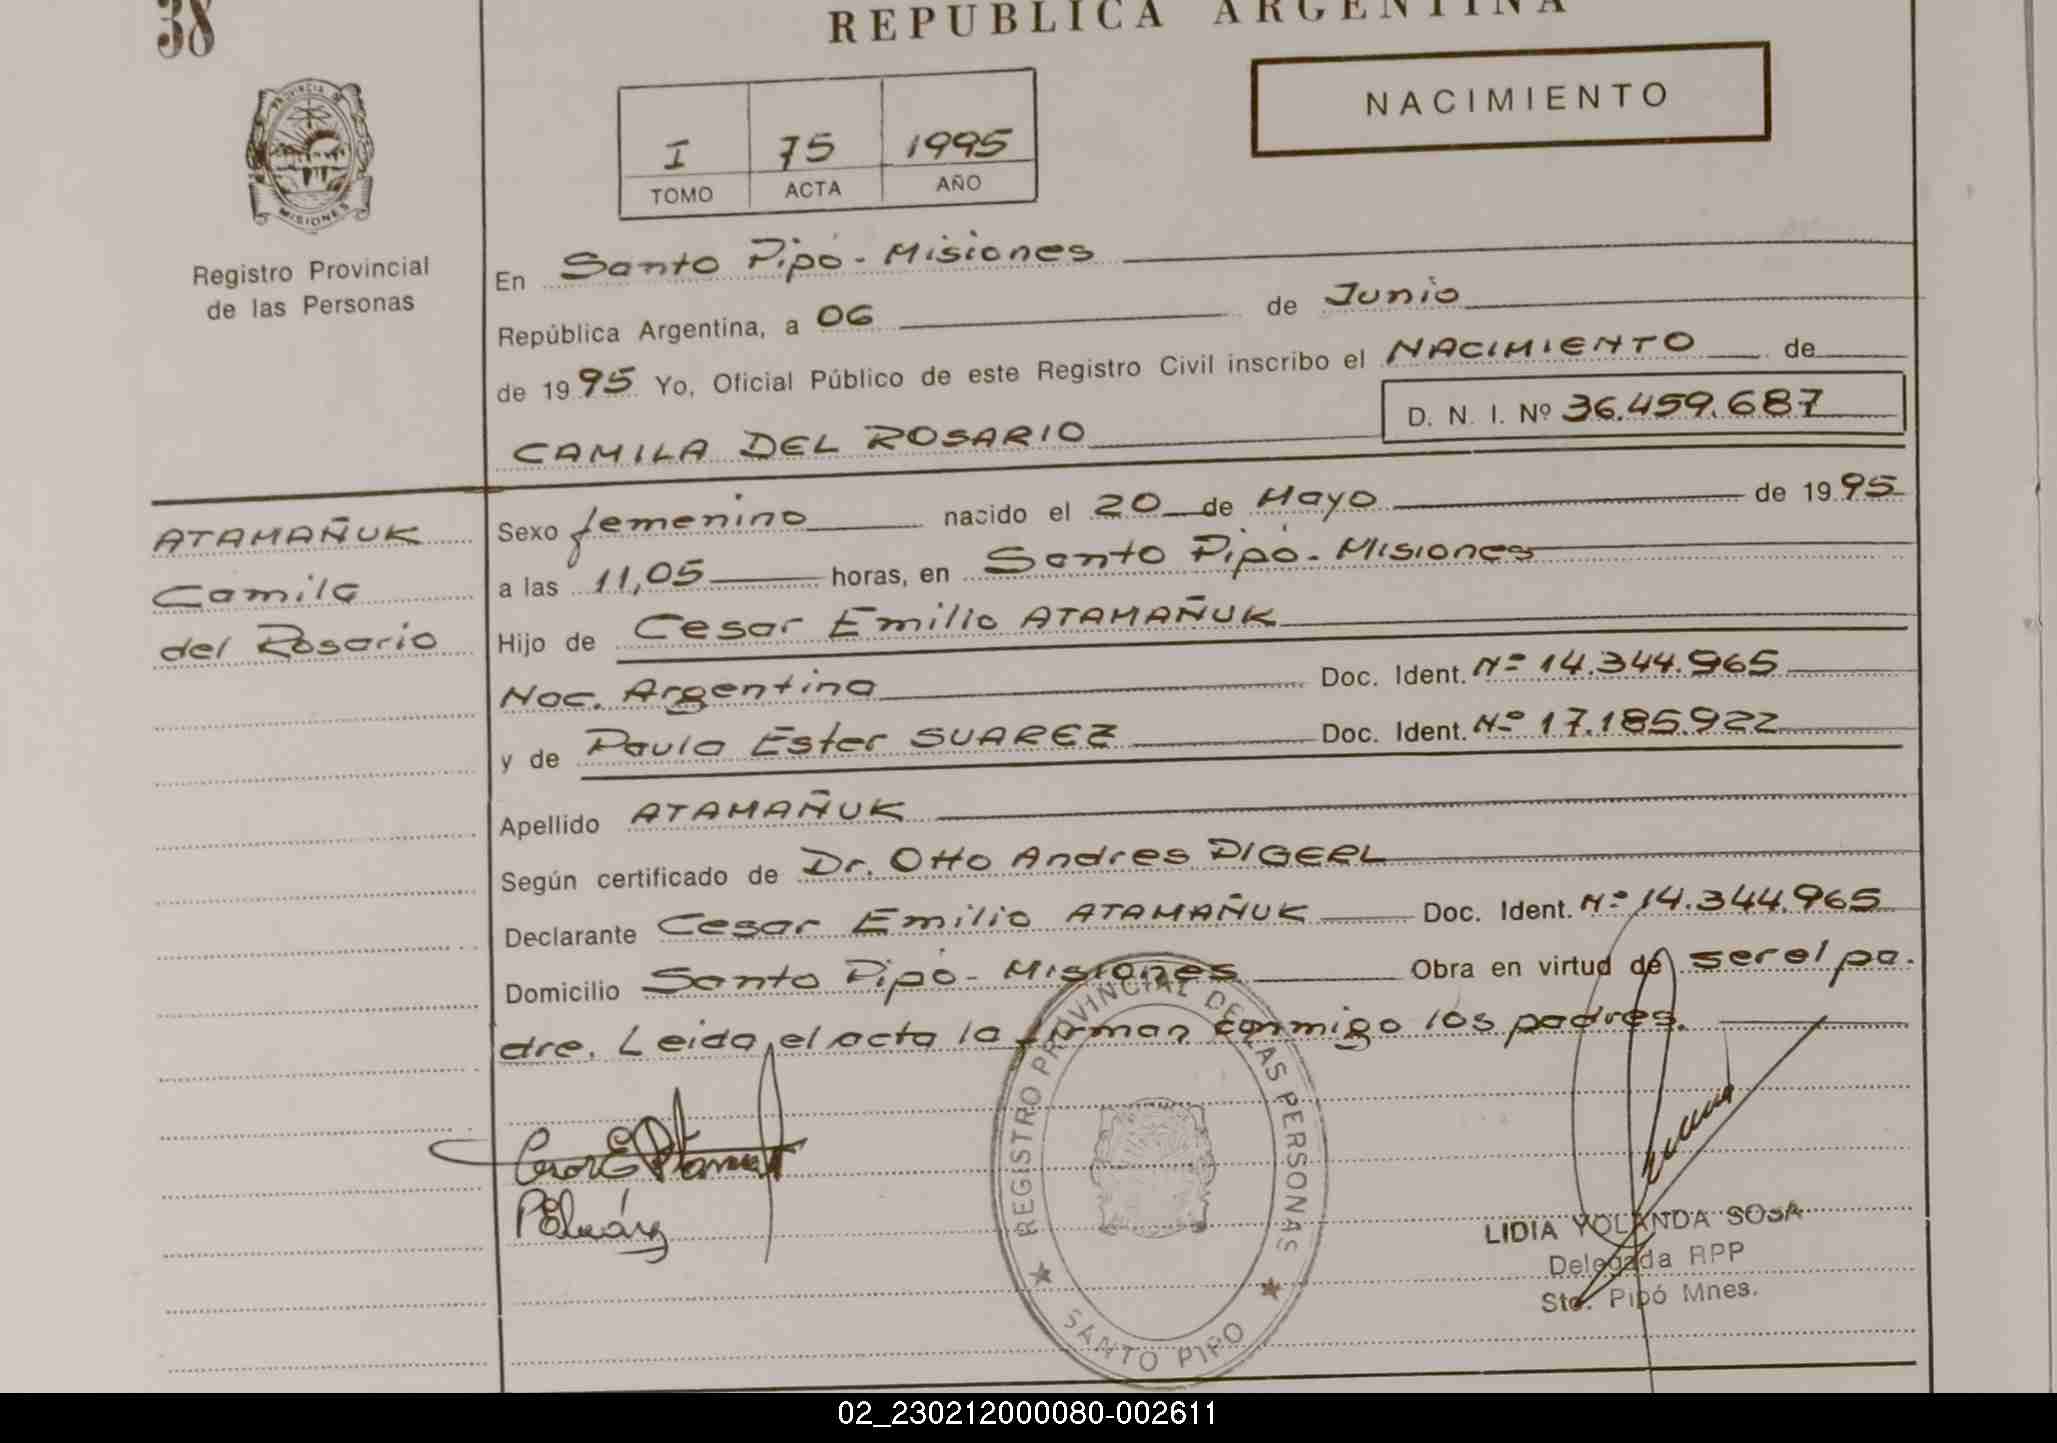 38
REPUBLICA ARGENTINA
NACIMIENTO
I 75 1995
TOMO ACTA AÑO
PROVINCIA DE
MISIONES
Registro Provincial
de las Personas
En Santo Pipó - Misiones
República Argentina, a 06 de Junio
de 1995 Yo, Oficial Público de este Registro Civil inscribo el NACIMIENTO de
D. N. I. Nº 36.459.687
CAMILA DEL ROSARIO
ATAMAÑUK
Camila
del Rosario
Sexo femenino nacido el 20 de Mayo de 1995
a las 11,05 horas, en Santo Pipó - Misiones
Hijo de Cesar Emilio ATAMAÑUK
Nac. Argentina Doc. Ident. Nº 14.344.965
y de Paula Ester SUAREZ Doc. Ident. Nº 17.185.922
Apellido ATAMAÑUK
Según certificado de Dr. Otto Andres DIGERL
Declarante Cesar Emilio ATAMAÑUK Doc. Ident. Nº 14.344.965
Domicilio Santo Pipó - Misiones Obra en virtud de ser el pa-
dre. Leida el acta la firman conmigo los padres.
REGISTRO PROVINCIAL DE LAS PERSONAS
SANTO PIPO
LIDIA YOLANDA SOSA
Delegada RPP
Sto. Pipó Mnes.
02_230212000080-002611